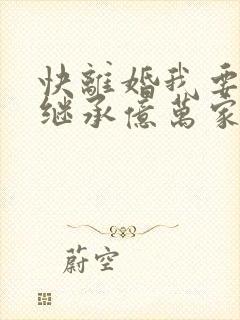 快離婚我要
继承億萬家
蔚空